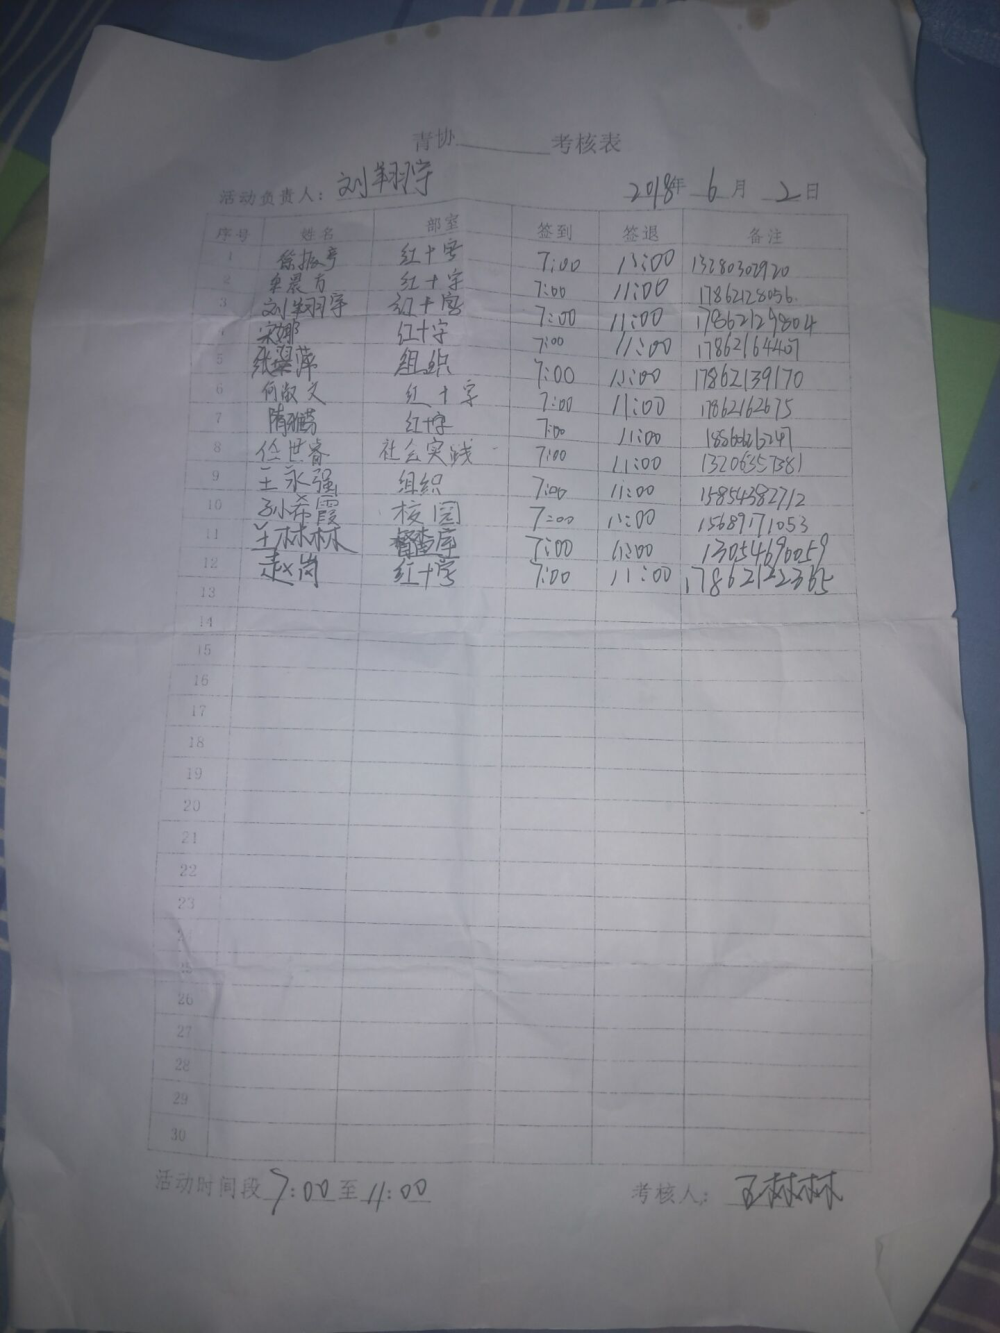 青协________考核表
活动负责人：刘翔宇 2018年 6 月 2 日
序号 姓名 部室 签到 签退 备注
1 徐振亭 红十字 7:00 11:00 13280302920
2 红十字 7:00 11:00 17862128056
3 刘翔宇 红十字 7:00 11:00 17862129804
4 宋娜 红十字 7:00 11:00 17862164407
5 张翠萍 组织 7:00 11:00 17862139170
6 何淑文 红十字 7:00 11:00 17862162675
7 红十字 7:00 11:00
8 任世睿 社会实践 7:00 11:00 13206357381
9 王永强 组织 7:00 11:00 15854382712
10 孙希霞 校园 7:00 11:00 15689171053
11 王林林 督查库 7:00 11:00 13054690059
12 赵岗 红十字 7:00 11:00 17862122365
13
14
15
16
17
18
19
20
21
22
23
26
27
28
29
30
活动时间段 7:00 至 11:00 考核人：王林林